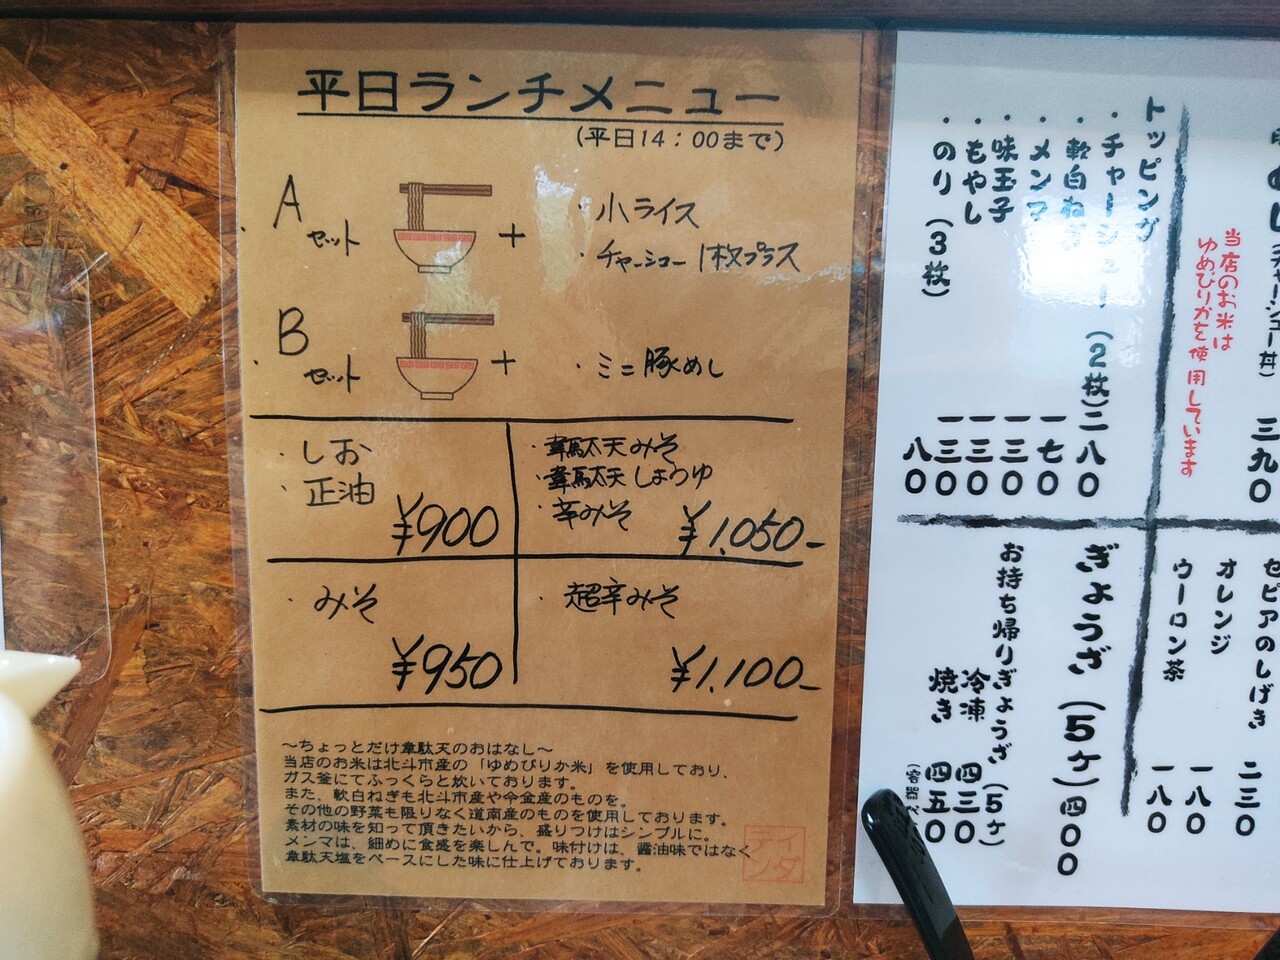 平日ランチメニュー
(平日14：00まで)
A セット
+
・小ライス
・チャーシュー 1枚プラス
B セット
+
・ミニ豚めし
・しお
・正油
¥900
・韋駄天みそ
・韋駄天しょうゆ
・辛みそ
¥1,050-
・みそ
¥950
・超辛みそ
¥1,100-
〜ちょっとだけ韋駄天のおはなし〜
当店のお米は北斗市産の「ゆめぴりか米」を使用しており、
ガス釜にてふっくらと炊いております。
また、軟白ねぎも北斗市産や今金産のものを。
その他の野菜も限りなく道南産のものを使用しております。
素材の味を知って頂きたいから、盛りつけはシンプルに。
メンマは、細めに食感を楽しんで。味付けは、醤油味ではなく
韋駄天塩をベースにした味に仕上げております。
イダテン
(チャーシュー丼) 三九〇
当店のお米は
ゆめぴりかを使用しています
トッピング
・チャーシュー (2枚) 二八〇
・軟白ねぎ 一七〇
・メンマ 一三〇
・味玉子 一三〇
・もやし 一三〇
・のり (3枚) 八〇
セピアのしげき 二三〇
オレンジ 一八〇
ウーロン茶 一八〇
ぎょうざ (5ヶ) 四〇〇
お持ち帰りぎょうざ (5ヶ)
冷凍 四三〇
焼き 四五〇